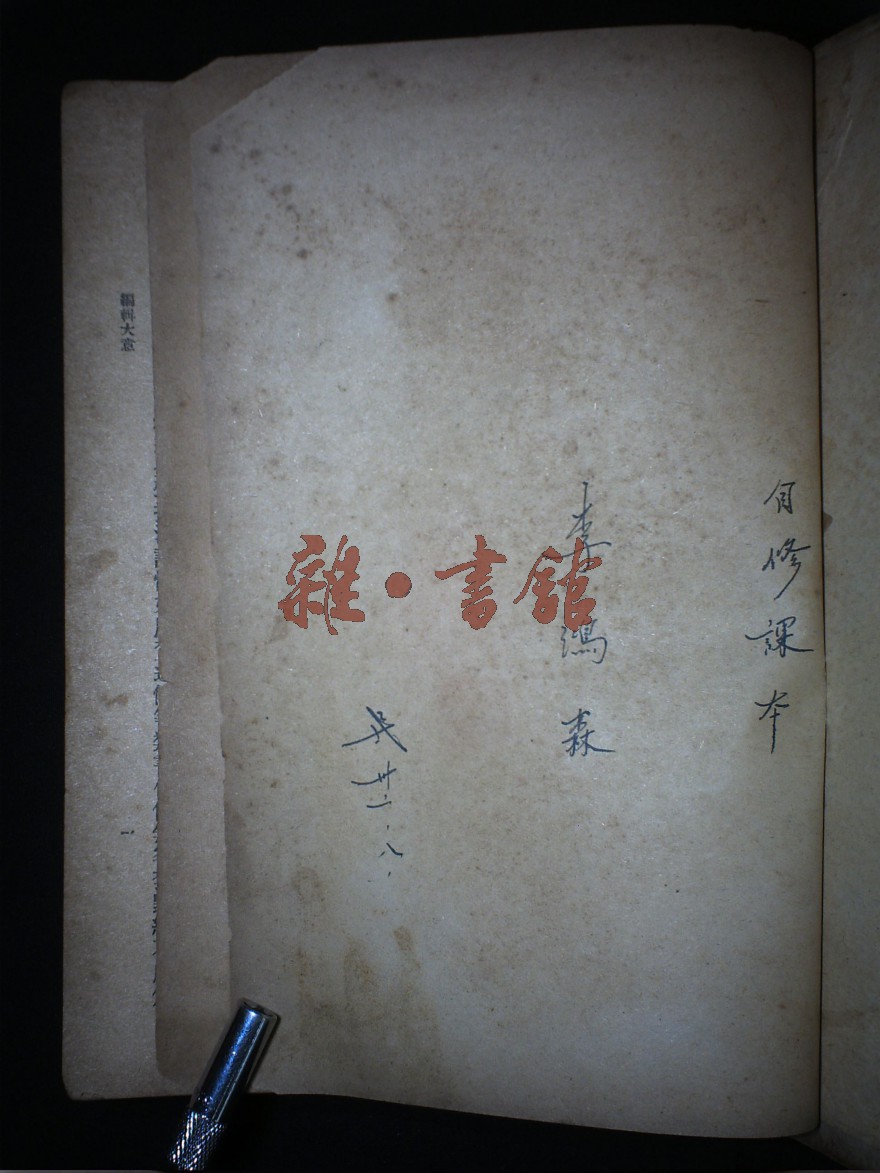 自修課本
李鴻森
民卅二.八.
雜·書館
編輯大意
一